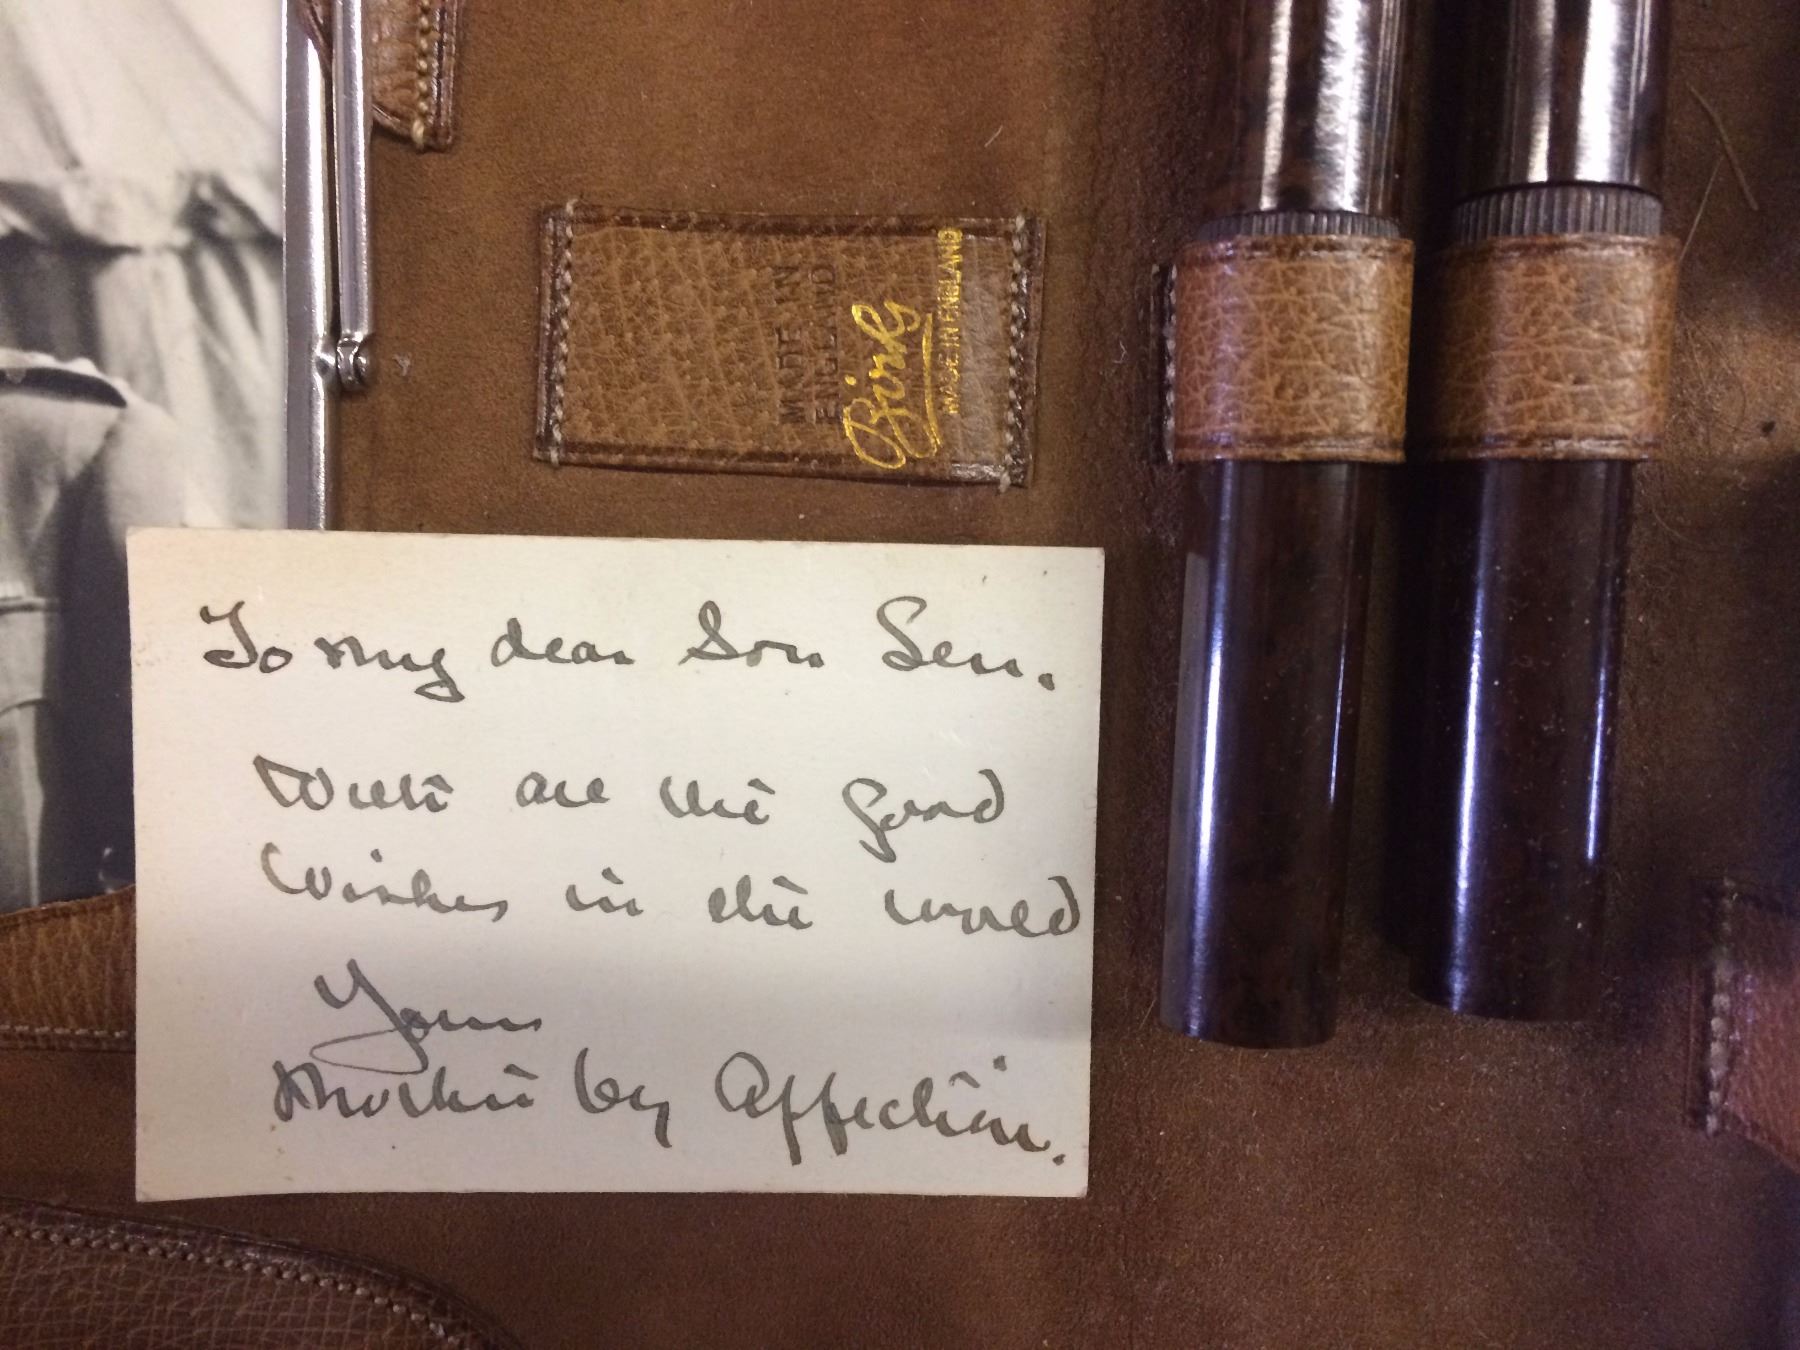 MADE IN
ENGLAND
Birks
MADE IN ENGLAND
To my dear Son Sen.
With all the good
Wishes in the world
Yours
Mother by Affection.